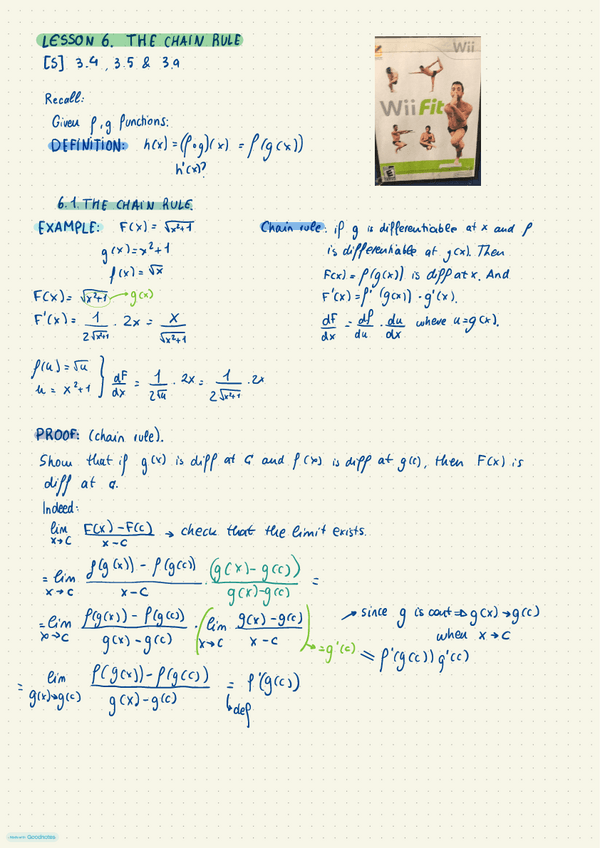 LESSON 6. THE CHAIN RULE
[S] 3.4, 3.5 & 3.9
Wii
Wii Fit
E
Recall:
Given f, g functions:
DEFINITION: h(x) = (f∘g)(x) = f(g(x))
h'(x)?
6.1. THE CHAIN RULE
EXAMPLE: F(x) = √(x²+1)
g(x) = x²+1
f(x) = √x
F(x) = √(x²+1) → g(x)
F'(x) = 1/(2√(x²+1)) · 2x = x/√(x²+1)
f(u) = √u
u = x²+1 } dF/dx = 1/(2√u) · 2x = 1/(2√(x²+1)) · 2x
Chain rule: if g is differentiable at x and f
is differentiable at g(x). Then
F(x) = f(g(x)) is diff at x. And
F'(x) = f'(g(x)) · g'(x).
dF/dx = df/du · du/dx where u = g(x).
PROOF: (chain rule).
Show that if g(x) is diff at c and f(x) is diff at g(c), then F(x) is
diff at c.
Indeed:
lim x→c (F(x) − F(c))/(x − c) → check that the limit exists.
= lim x→c (f(g(x)) − f(g(c)))/(x − c) · (g(x) − g(c))/(g(x) − g(c)) =
= lim x→c (f(g(x)) − f(g(c)))/(g(x) − g(c)) · (lim x→c (g(x) − g(c))/(x − c)) → = g'(c)
→ since g is cont ⇒ g(x) → g(c)
when x → c
= f'(g(c)) g'(c)
= lim g(x)→g(c) (f(g(x)) − f(g(c)))/(g(x) − g(c)) = f'(g(c))
def
Made with Goodnotes